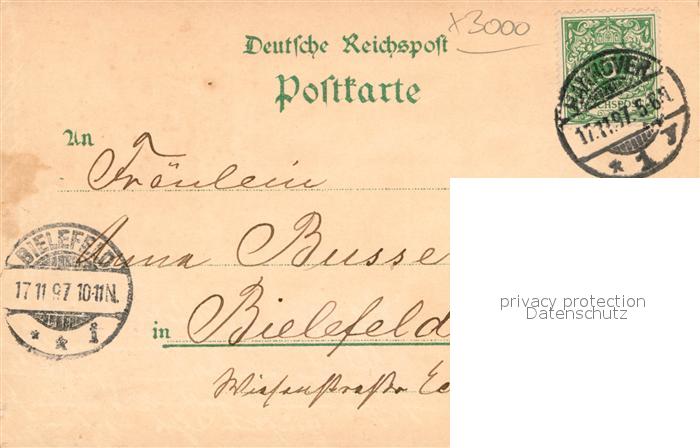 x3000
Deutsche Reichspost
Postkarte
HANNOVER
REICHSPOST
17.11.97. 5-6N.
* 1 y
An
Fräulein
Anna Busse
BIELEFELD
17 11 97 10-11N.
* * i
in Bielefeld
Wiesenstraße Ec
privacy protection
Datenschutz